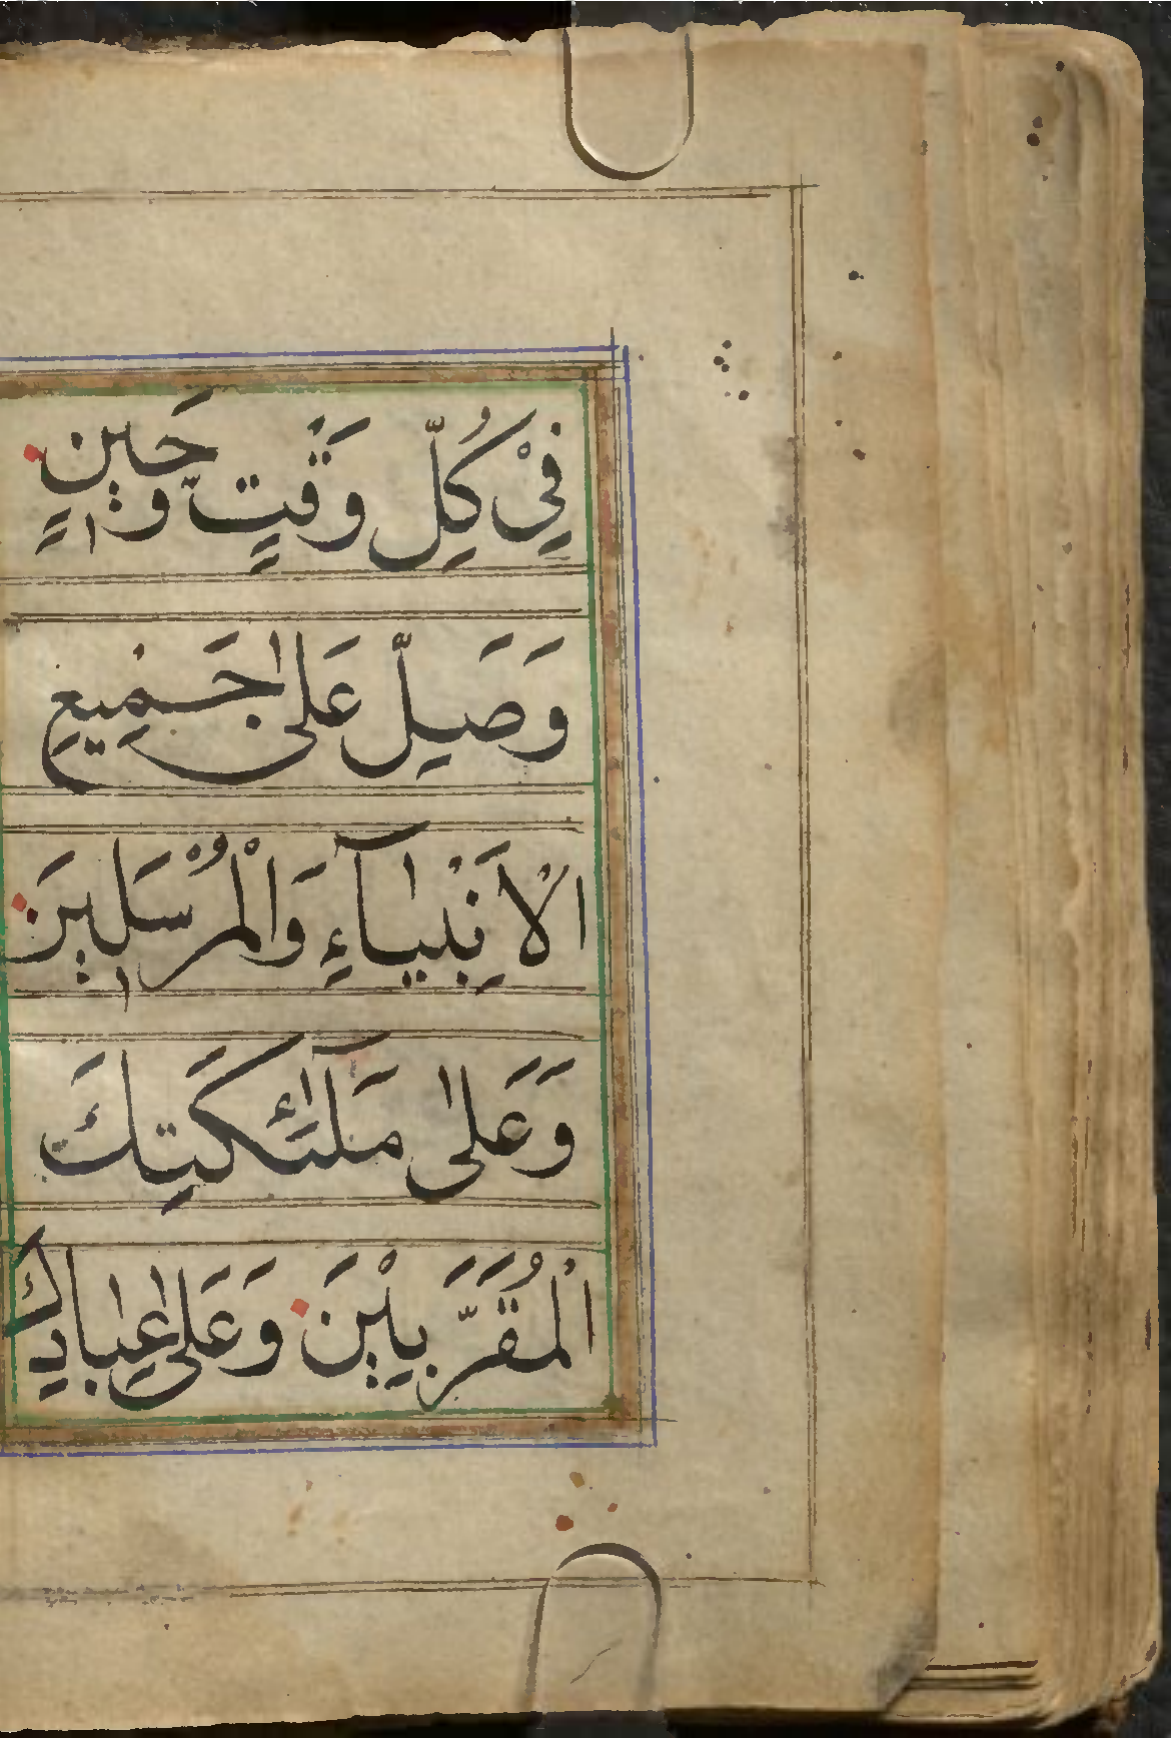 فِيْ كُلِّ وَقْتٍ وَّحِيْنٍ
وَصَلِّ عَلٰى جَمِيْعِ
الْاَنْبِيَآءِ وَالْمُرْسَلِيْنَ
وَعَلٰى مَلٰٓئِكَتِكَ
الْمُقَرَّبِيْنَ وَعَلٰى عِبَادِكَ